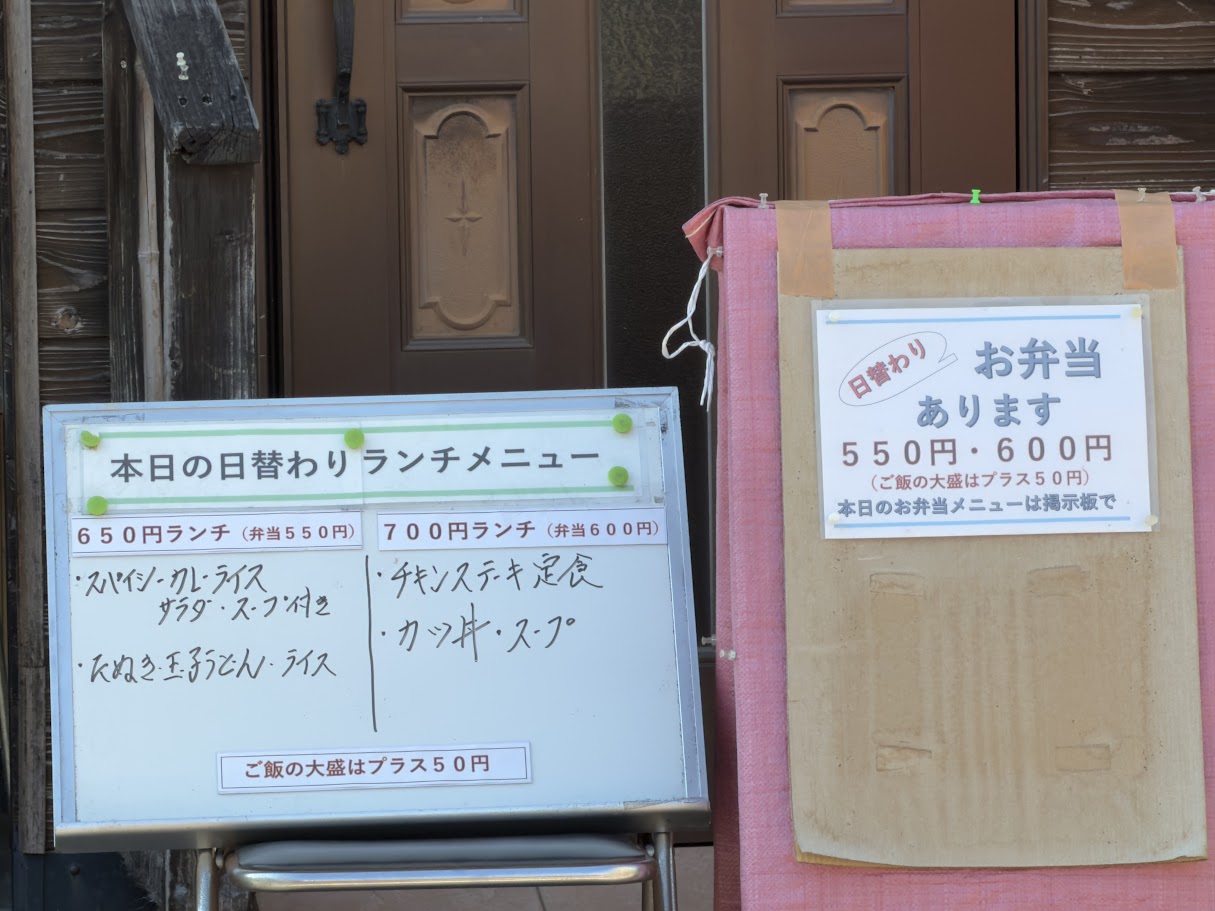 本日の日替わりランチメニュー
650円ランチ（弁当550円）
・スパイシーカレーライス
サラダ・スープ付き
・たぬき玉子うどん・ライス
700円ランチ（弁当600円）
・チキンステーキ定食
・カツ丼・スープ
ご飯の大盛はプラス50円
日替わり
お弁当
あります
550円・600円
（ご飯の大盛はプラス50円）
本日のお弁当メニューは掲示板で